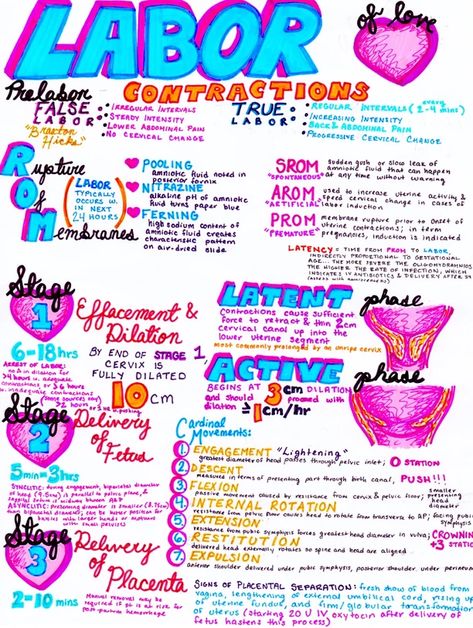 LABOR
of love
CONTRACTIONS
Prelabor
FALSE LABOR
"Braxton Hicks"
: IRREGULAR INTERVALS
: STEADY INTENSITY
: LOWER ABDOMINAL PAIN
: NO CERVICAL CHANGE
TRUE LABOR
: REGULAR INTERVALS (every 2-4 mins)
: INCREASING INTENSITY
: BACK & ABDOMINAL PAIN
: PROGRESSIVE CERVICAL CHANGE
Rupture
Of
Membranes
(LABOR TYPICALLY OCCURS W. IN NEXT 24 HOURS)
POOLING
amniotic fluid noted in
posterior fornix
NITRAZINE
alkaline pH of amniotic
fluid turns paper blue
FERNING
high sodium content of
amniotic fluid creates
characteristic pattern
on air-dried slide
SROM
"SPONTANEOUS"
sudden gush or slow leak of
amniotic fluid that can happen
at any time without warning
AROM
"ARTIFICIAL"
used to increase uterine activity &
speed cervical change in cases of
labor induction
PROM
"PREMATURE"
membrane rupture prior to onset of
uterine contractions; in term
pregnancies, induction is indicated
LATENCY = TIME FROM PROM TO LABOR,
INDIRECTLY PROPORTIONAL TO GESTATIONAL
AGE... THE MORE SEVERE THE OLIGOHYDRAMNIOS
THE HIGHER THE RATE OF INFECTION, WHICH
INDICATES IV ANTIBIOTICS & DELIVERY AFTER 34
Stage
1
Effacement &
Dilation
6-18hrs
BY END OF STAGE 1
CERVIX IS
FULLY DILATED
10cm
ARREST OF LABOR:
LATENT phase
Contractions cause sufficient
force to retract & thin 2cm
cervical canal up into the
lower uterine segment
most commonly prolonged by an unripe cervix
ACTIVE phase
BEGINS AT 3cm DILATION
and should proceed with
dilation ≥1cm/hr
Stage
2
Delivery
of Fetus
5min-3hrs
Cardinal
Movements:
1. ENGAGEMENT "Lightening"
greatest diameter of head passes through pelvic inlet; 0 STATION
2. DESCENT
measured in terms of presenting part through birth canal, PUSH!!!
3. FLEXION
passive movement caused by resistance from cervix & pelvic floor; smaller presenting head diameter
4. INTERNAL ROTATION
resistance from pelvic floor causes head to rotate from transverse to AP; facing pubic symphysis
5. EXTENSION
resistance from pubic symphysis forces greatest head diameter in vulva; CROWNING
+3 STATION
6. RESTITUTION
delivered head externally rotates so spine and head are aligned
7. EXPULSION
anterior shoulder delivered under pubic symphysis, posterior shoulder under perineum
Stage
3
Delivery of
Placenta
2-10 mins
Manual removal may be
required if pt is at risk for
post-partum hemorrhage
SIGNS OF PLACENTAL SEPARATION: fresh show of blood from
vagina, lengthening of external umbilical cord, rising up
of uterine fundus, and firm/globular transformation
of uterus (starting 20 U IV oxytocin after delivery of
fetus hastens this process)